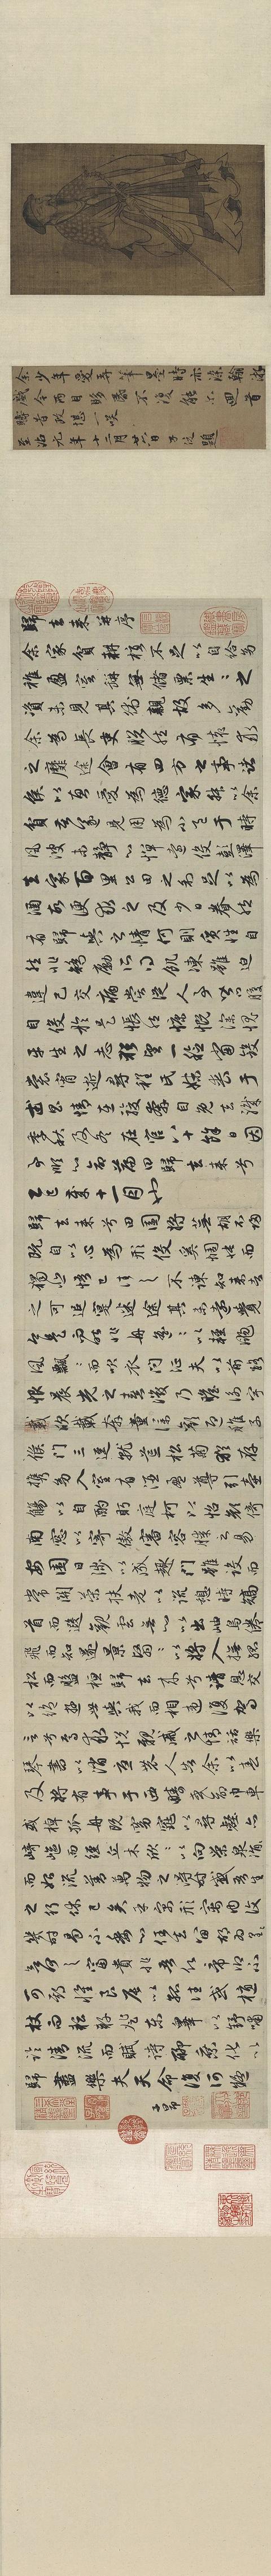 余少年愛弄筆墨時亦染翰游
戲今兩目眵昏不復能尒回首
疇昔政堪一笑
至治元年十二月廿日題
歸去來并序
余家貧耕植不足以自給幼
稚盈室缾無儲粟生〻之
資未見其術親故多勸
余為長吏脫然有懷求
之靡途會有四方之事諸
侯以惠愛為德家叔以余
貧苦遂見用為小邑于時
風波未靜心憚遠役彭澤
去家百里公田之利足以為
酒故便求之及少日眷然
有歸與之情何則質性自
然非矯勵所得飢凍雖迫
違己交病嘗從人事皆口腹
自役於是悵然慷慨深愧
平生之志猶望一稔當斂
裳宵逝尋程氏妹喪于
武昌情在駿奔自免去職
季秋及冬在官八十餘日因
事順心命篇曰歸去來兮
乙巳歲十一月也
歸去來兮田園將蕪胡不歸
既自以心為形役奚惆悵而
獨悲悟已往之不諫知來者
之可追寔迷途其未遠覺
今是而昨非舟遙〻以輕颺
風飄〻而吹衣問征夫以前路
恨晨光之熹微乃瞻衡宇
載欣載奔童僕歡迎稚子
候門三逕就荒松菊猶存
攜幼入室有酒盈尊引壺
觴以自酌眄庭柯以怡顏倚
南窗以寄傲審容膝之易
安園日涉以成趣門雖設而
常關策扶老以流憩時矯
首而遐觀雲無心以出岫鳥倦
飛而知還景翳〻以將入撫孤
松而盤桓歸去來兮請息交
以絕遊世與我而相遺復駕
言兮焉求悅親戚之情話樂
琴書以消憂農人告余以春
及將有事于西疇或命巾車
或棹孤舟既窈窕以尋壑亦
崎嶇而經丘木欣〻以向榮泉涓〻
而始流善萬物之得時感吾生
之行休已矣乎寓形宇內復
幾時曷不委心任去留胡為遑〻
欲何之富貴非吾願帝鄉不
可期懷良辰以孤往或植
杖而耘耔登東皋以舒嘯
臨清流而賦詩聊乘化以
歸盡樂夫天命復何疑
子昂